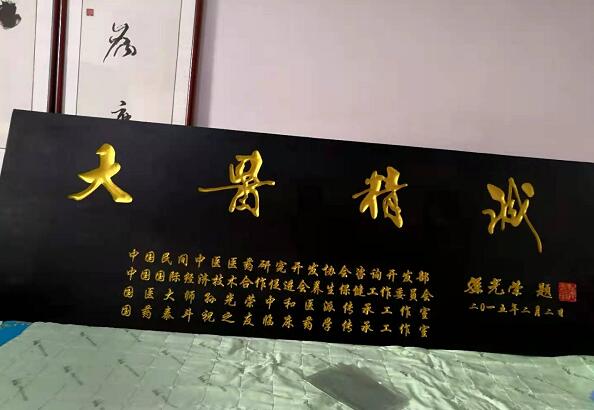 大医精诚
中国民间中医医药研究开发协会咨询开发部
中国国际经济技术合作促进会养生保健工作委员会
国医大师孙光荣中和医派传承工作室
国药泰斗祝之友临床药学传承工作室
孫光荣 题
二〇一五年二月二日